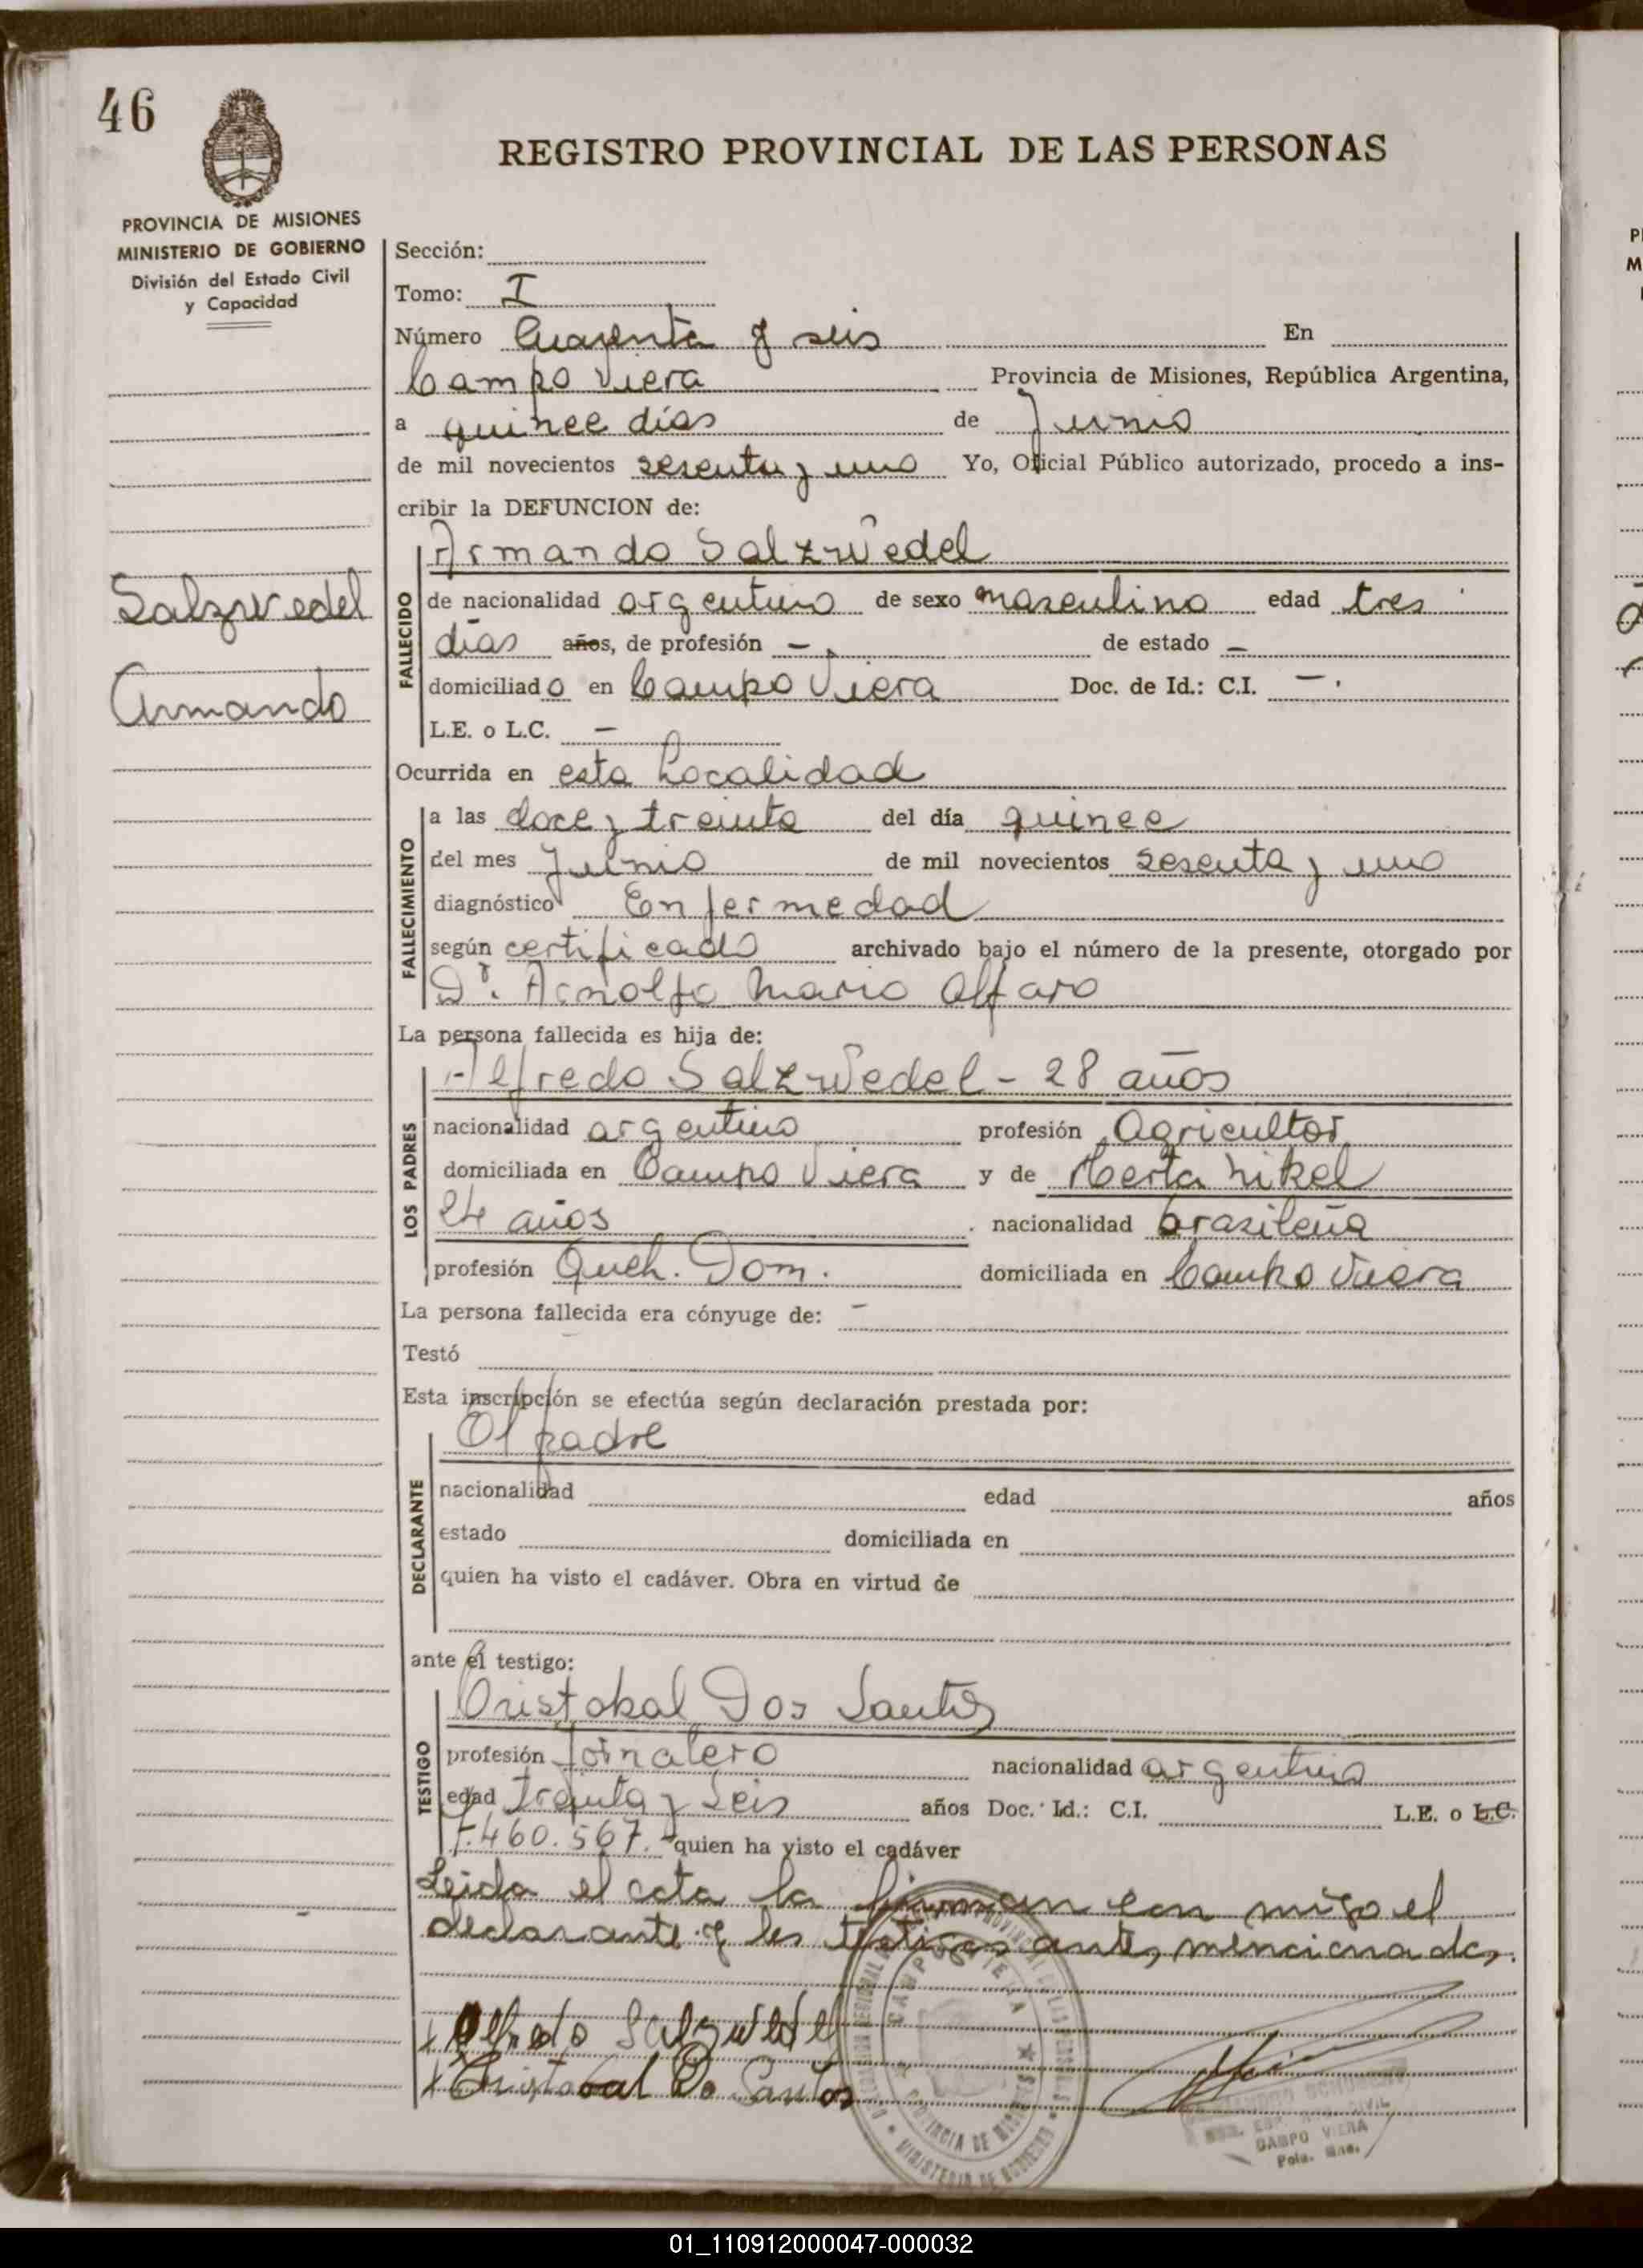 46
REGISTRO PROVINCIAL DE LAS PERSONAS
PROVINCIA DE MISIONES
MINISTERIO DE GOBIERNO
División del Estado Civil
y Capacidad
Salzwedel
Armando
Sección:
Tomo: I
Número Cuarenta y seis En
Campo Viera Provincia de Misiones, República Argentina,
a quince días de Junio
de mil novecientos sesenta y uno Yo, Oficial Público autorizado, procedo a ins-
cribir la DEFUNCION de:
Armando Salzwedel
FALLECIDO
de nacionalidad argentino de sexo masculino edad tres
días años, de profesión - de estado -
domiciliado en Campo Viera Doc. de Id.: C.I. -.
L.E. o L.C. -
Ocurrida en esta Localidad
FALLECIMIENTO
a las doce y treinta del día quince
del mes Junio de mil novecientos sesenta y uno
diagnóstico Enfermedad
según certificado archivado bajo el número de la presente, otorgado por
Dr. Arnolfo Mario Alfaro
La persona fallecida es hija de:
LOS PADRES
Alfredo Salzwedel - 28 años
nacionalidad argentino profesión Agricultor
domiciliada en Campo Viera y de Herta Nikel
24 años nacionalidad brasileña
profesión Queh. Dom. domiciliada en Campo Viera
La persona fallecida era cónyuge de: -
Testó
Esta inscripción se efectúa según declaración prestada por:
DECLARANTE
El padre
nacionalidad edad años
estado domiciliada en
quien ha visto el cadáver. Obra en virtud de
ante el testigo:
TESTIGO
Cristobal Dos Santos
profesión Jornalero nacionalidad argentino
edad treinta y seis años Doc. Id.: C.I. L.E. o L.C.
7.460.567.- quien ha visto el cadáver
Leida el acta la firman con migo el
declarante y los testigos antes mencionados.
Alfredo Salzwedel
Cristobal Do Santos
CAMPO VIERA
PROVINCIA DE MISIONES
MINISTERIO DE GOBIERNO
CIVIL
CAMPO VIERA
Pcia. Mnes.
01_110912000047-000032